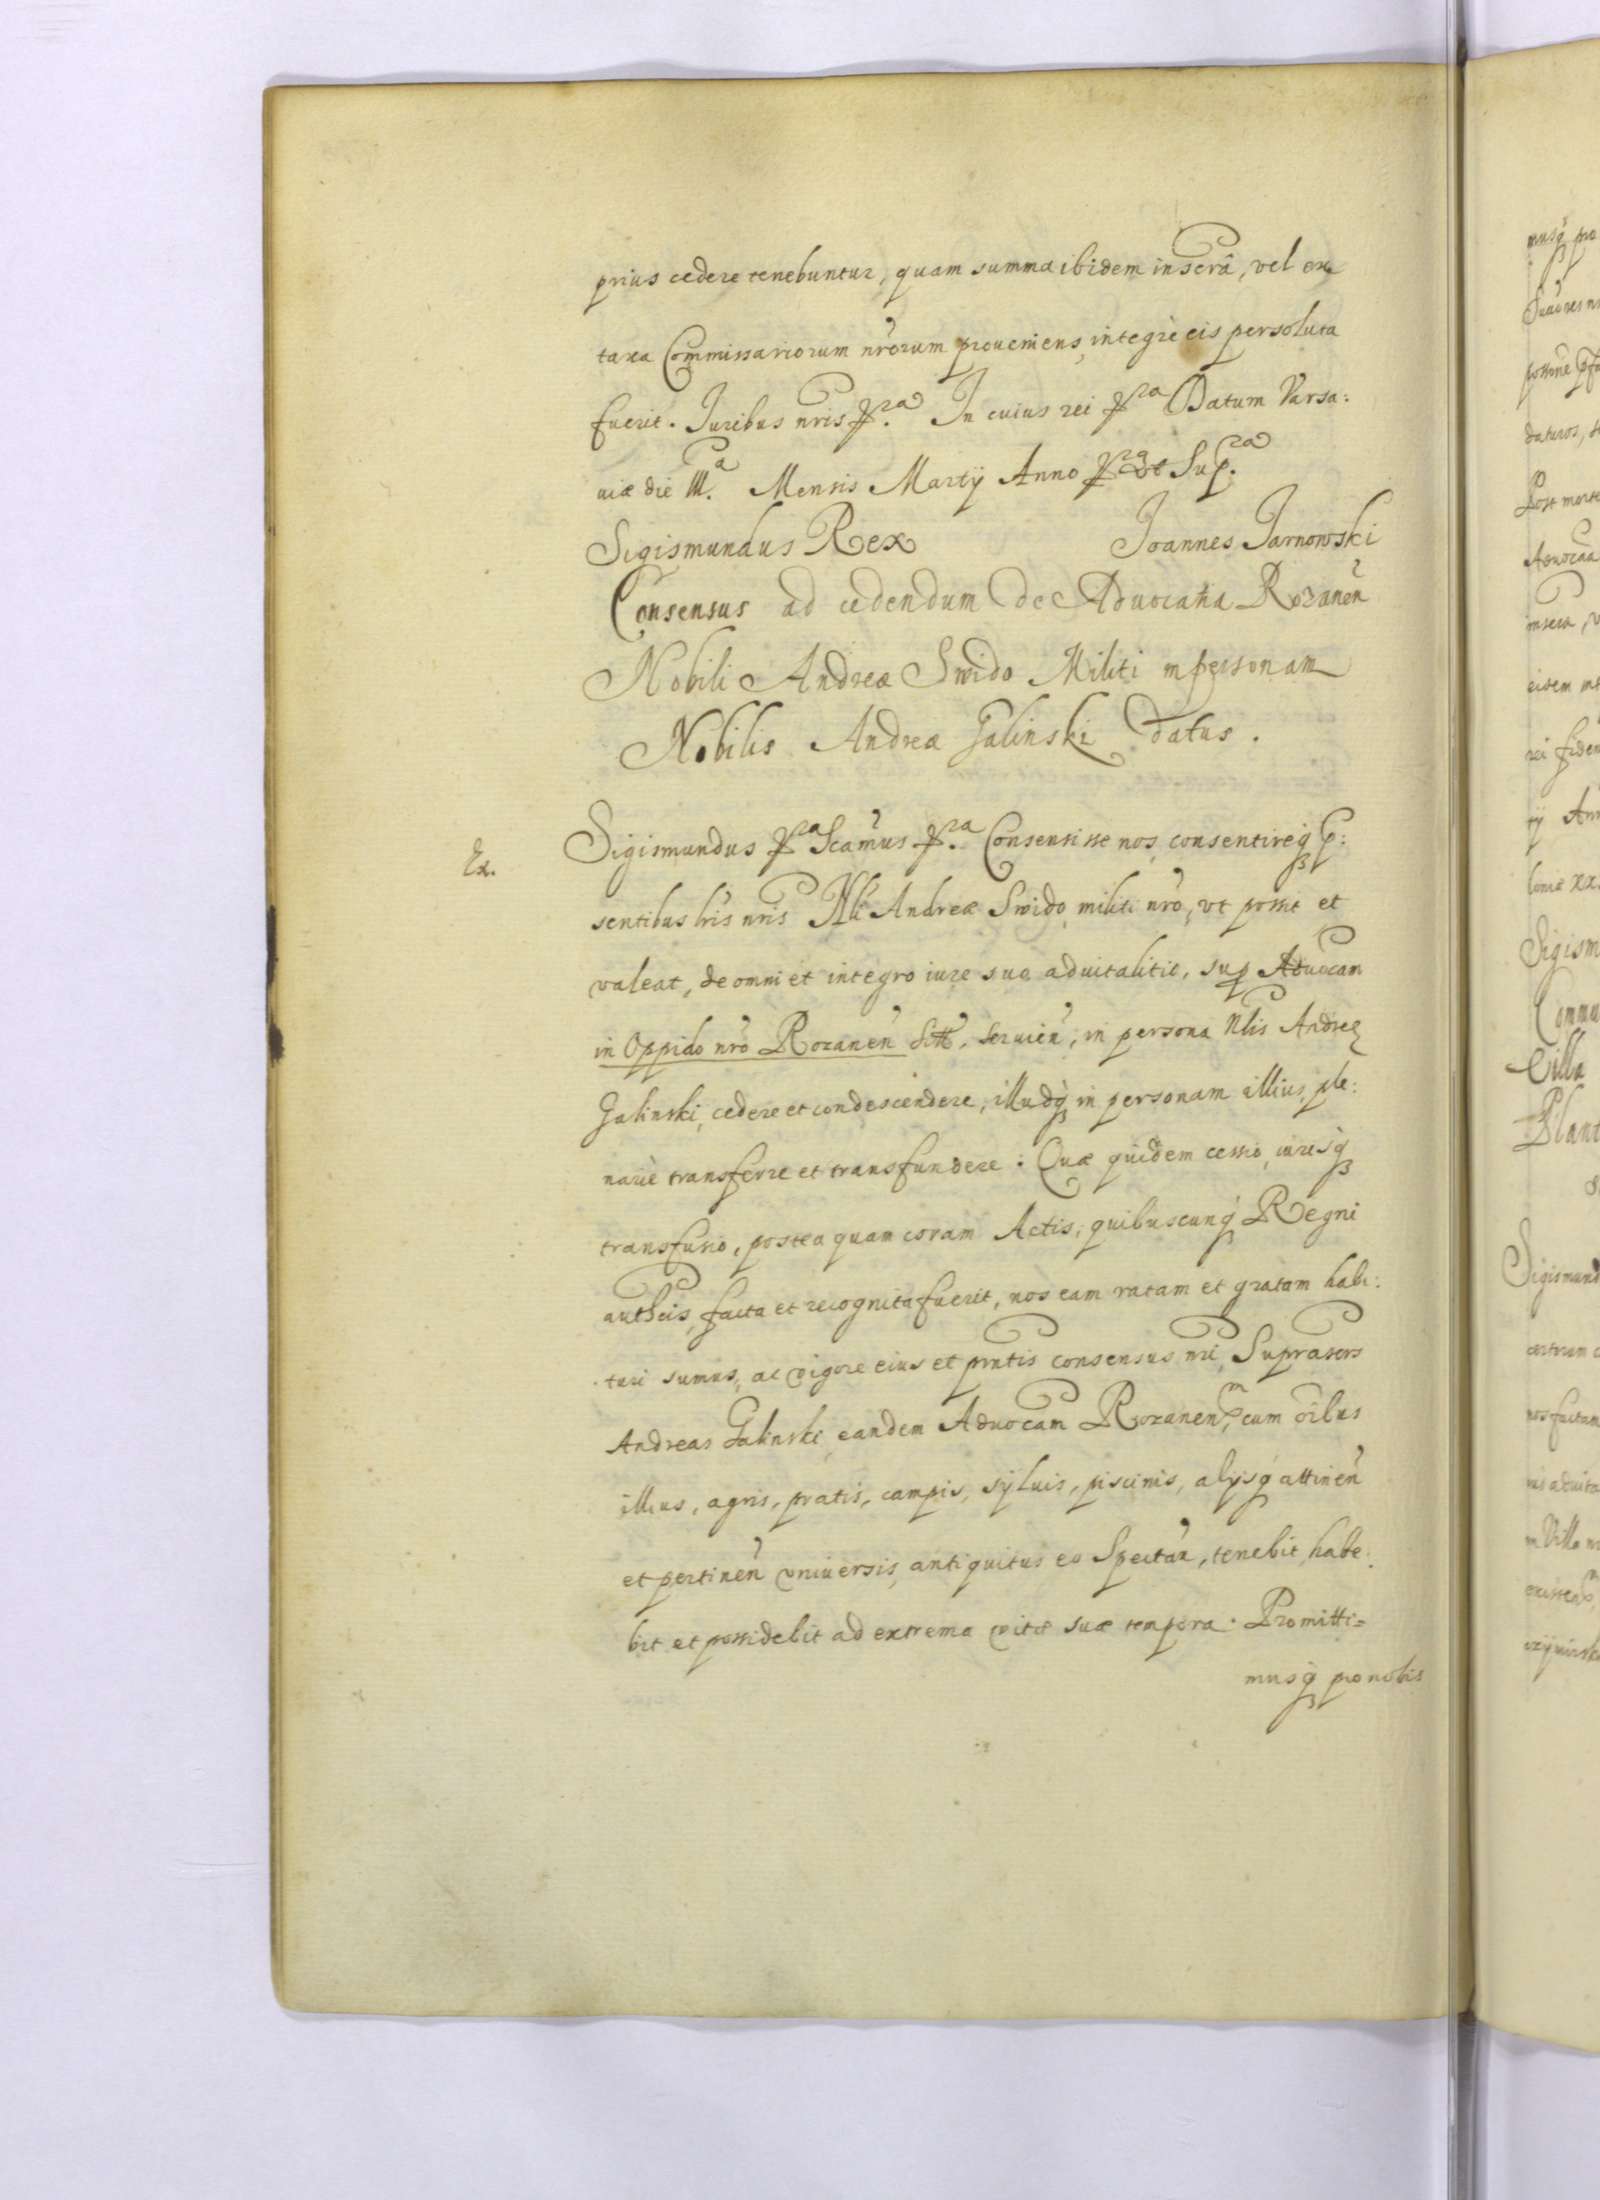 prius cedere tenebuntur, quam summa ibidem inserã, vel ex
taxa Commissariorum nr̃orum proueniens, integrè eis persoluta
fuerit. Iuribus nr̃is &ra. In cuius rei &ra Datum Varsa:
uiæ die III.a Mensis Martij Anno &ra vt Supra
Sigismundus Rex Joannes Tarnowski
Consensus ad cedendum de Aduocatia Rozanen̄
Nobili Andreæ Swido Militi in personam
Nobilis Andreæ Galinski datus.
Ex.
Sigismundus &ra Scam̃us &ra. Consensisse nos, consentireq̃ p:
sentibus lr̃is nr̃is Nli Andreæ Swido militi nr̃o, vt possit et
valeat, de omni et integro iure suo aduitalitit, sup Aduocam̃
in Oppido nr̃o Rozanen̄ seruien̄, in persona Nlis Andreę
Galinski, cedere et condescendere, illudq̃ in personam illius, ple:
nariè transferre et transfundere: Quæ quidem cessio, iurisq̃
transfusio, postea quam coram Actis, quibuscunq̃ Regni
autheis, facta et recognita fuerit, nos eam ratam et gratam habi:
turi sumus, ac vigore eius et pn̄tis consensus nr̃i, Suprascrs
Andreas Galinski, eandem Aduocam̃ Rozanen̄m, cum oĩbus
illius, agris, pratis, campis, syluis, piscinis, alysq̃ attinen̄
et pertinen̄ vniuersis, antiquitus eo Spectan̄, tenebit, habe:
bit et possidebit ad extrema vitæ suæ tempora. Promitti=
musq̃ pro nobis